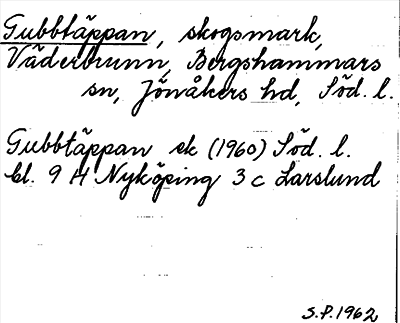 Gubbtäppan, skogsmark,
Väderbrunn, Bergshammars
sn, Jönåkers hd, Söd. l.
Gubbtäppan sk (1960) Söd. l.
bl. 9 H Nyköping 3 c Larslund
S.P. 1962